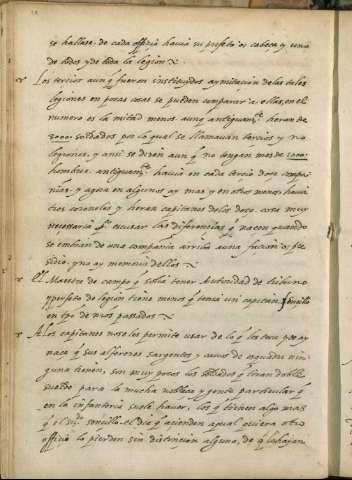 se hallase. de cada officio havia su prefeto o cabeça y una
de todos y de toda la legion
Los tercios aunq̃ fueron instituydos a ymitaçion de las tales
legiones en pocas cosas se pueden comparar a ellas, en el
numero es la mitad menos aunq̃ antiguam.te heran de
3000. soldados por lo qual se llamavan tercios y no
legiones, y ansi se dizen aun q̃ no tengan mas de 1000.
hombres. antiguam.te havia en cada tercio doze compa
ñias, y agora en algunos ay mas y en otros menos havia
tres coroneles y heran capitanes de los doze cosa muy
necessaria p.a escusar las diferencias q̃ nacen quando
se embian de una compañia arriva a una façion o pre
sidio. y no ay memoria dellos
El Maestro de campo q̃ solia tener Autoridad de tribuno
y prefeto de legion tiene menos q̃ tenia un capitan
en tpo de nros passados
A los capitanes no se les permite usar de lo q̃ les toca
naçe q̃ sus alferezes sargentos y cavos de esquadra nin
guna tienen, son muy pocos los soldados q̃ tiran doble
sueldo para la mucha nobleza y gente particular q̃
en la infanteria suele haver, los q̃ tienen algo mas
q̃ el sencillo el dia q̃ açienden a qualquiera otro
offiçio lo pierden sin distinçion alguna, de q̃